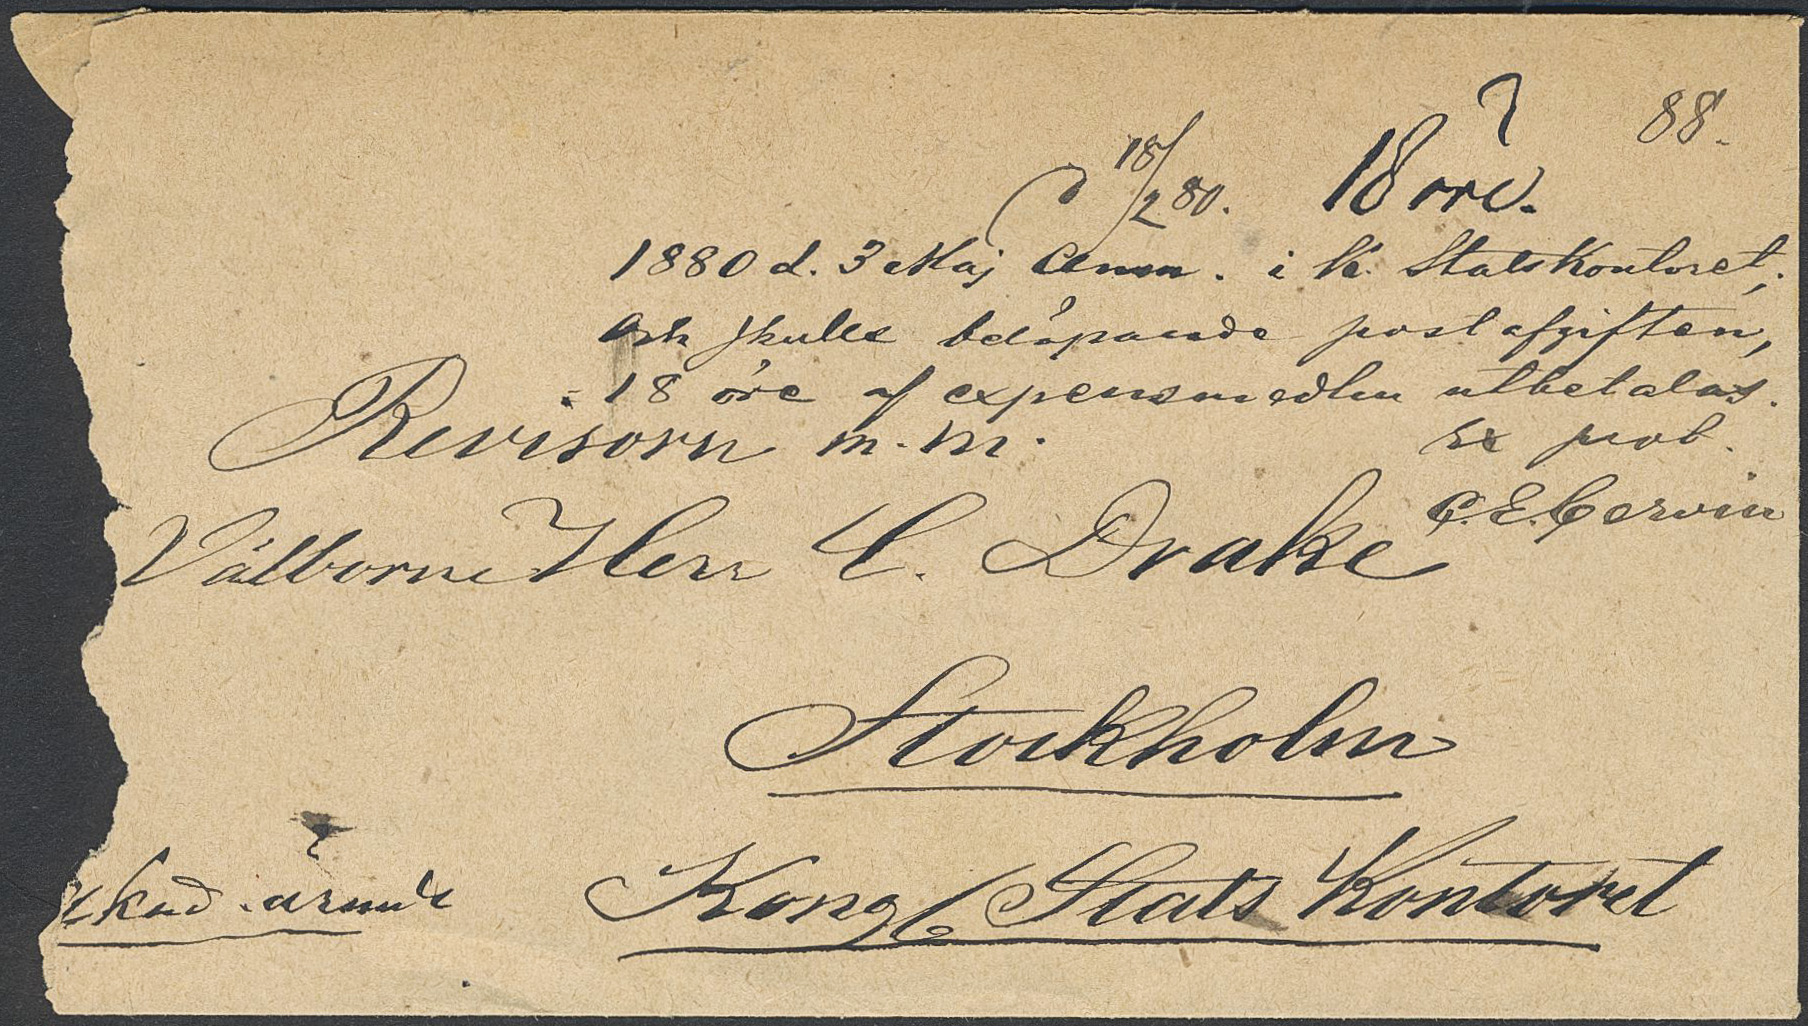 88.
18/2 80. 18 öre.
1880 d. 3 Maj Anm. i K. Statskontoret;
och skulle belöpande postafgiften,
18 öre af expensmedlen utbetalas.
Ex prot.
C. E. Cervin
Revisorn m. m.
Välborne Herr C. Drake
Stockholm
Kongl Stats Kontoret